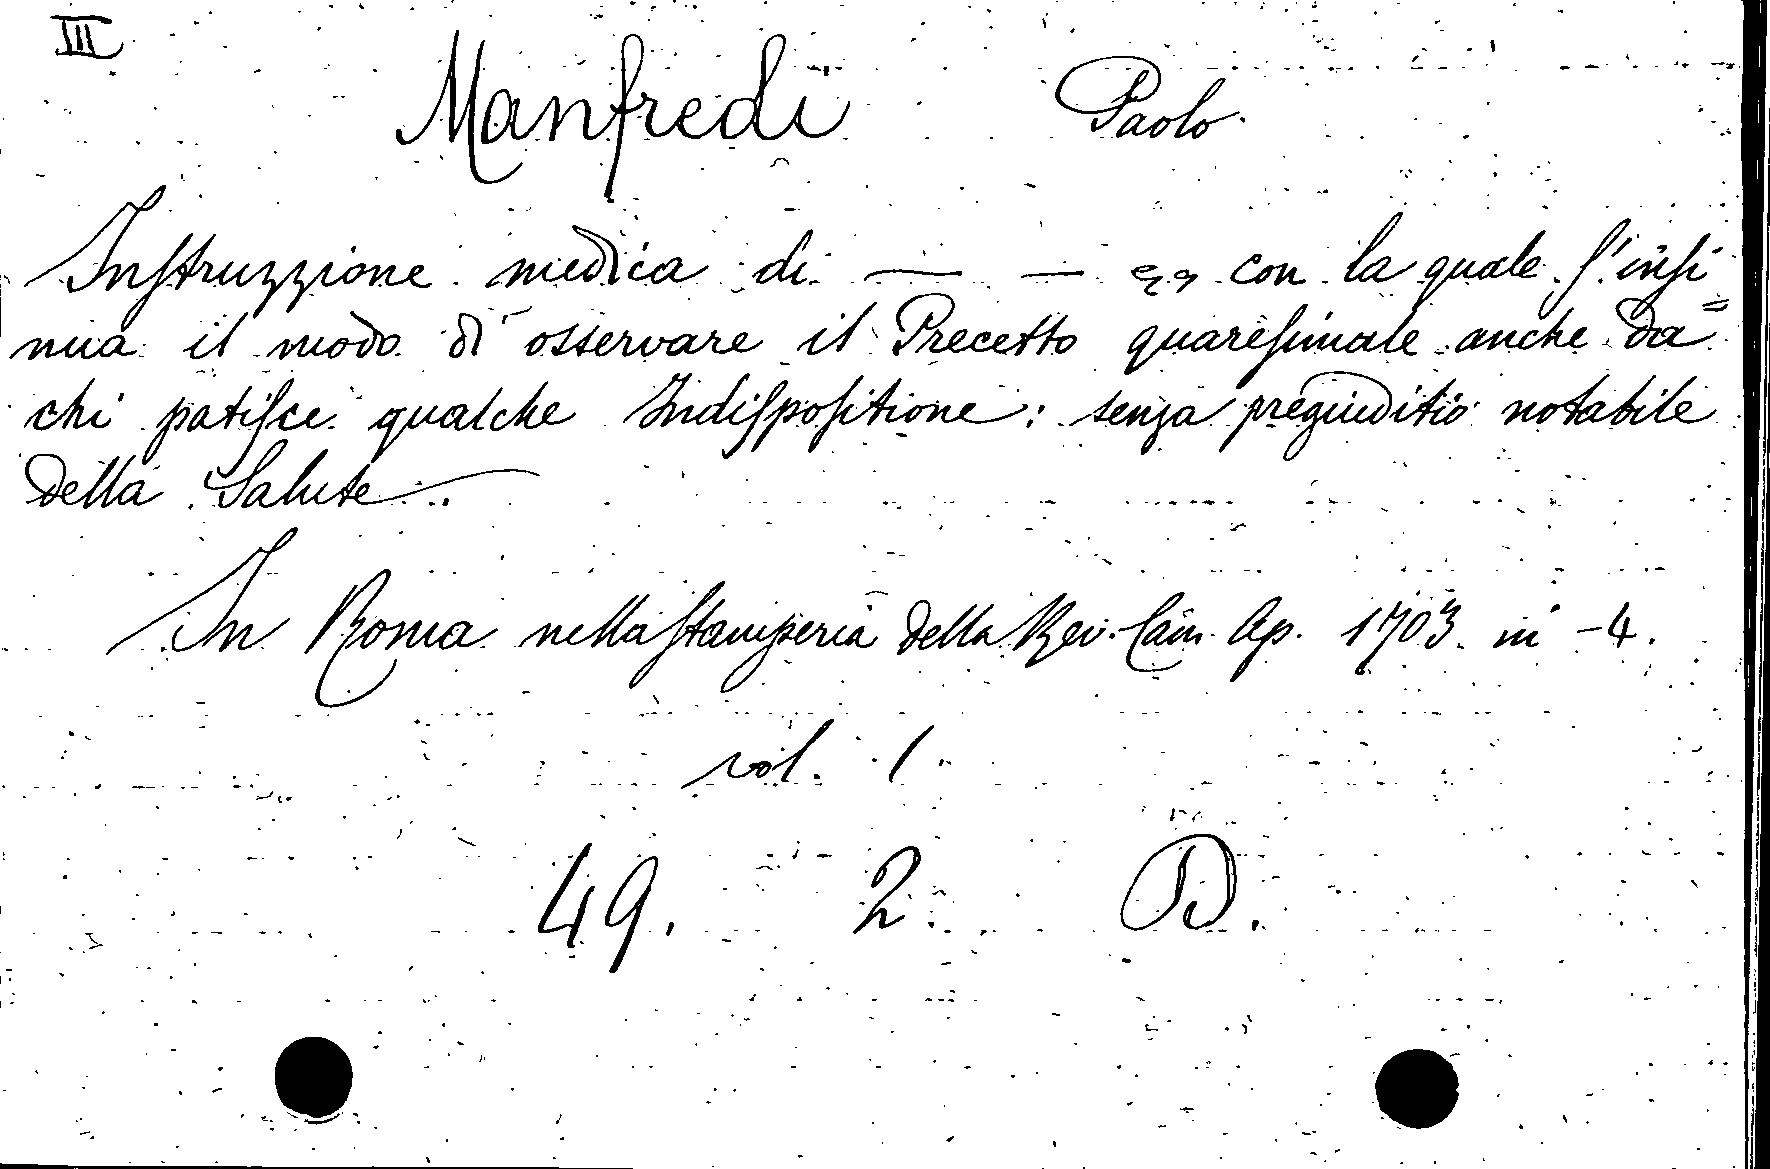 III
Manfredi Paolo.
Inſtruzzione medica di — — &c. con la quale ſ'inſi=
nua il modo di osservare il Precetto quareſimale anche da
chi patiſce qualche Indiſpoſitione: senza pregiuditio notabile
della Salute..
In Roma nella ſtamperia della Rev. Cam. Ap. 1703. in -4.
vol. 1.
49. 2. D.